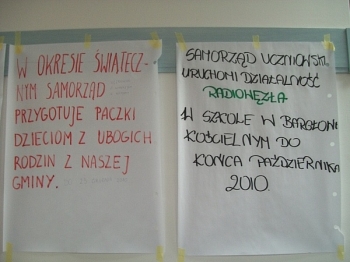 W OKRESIE ŚWIĄTECZ-
NYM SAMORZĄD
PRZYGOTUJE PACZKI
DZIECIOM Z UBOGICH
RODZIN Z NASZEJ
GMINY.
SAMORZĄD UCZNIOWSKI
URUCHOMI DZIAŁALNOŚĆ
RADIOWĘZŁA
W SZKOLE W BARGŁOWIE
KOŚCIELNYM DO
KOŃCA PAŹDZIERNIKA
2010.